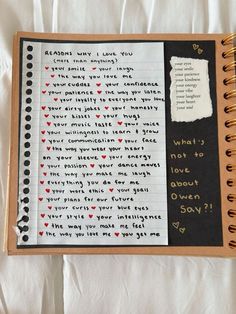 REASONS WHY I LOVE YOU
(more than anything)
your smile ♥ your laugh
♥ the way you love me
your cuddles ♥ your confidence
your patience ♥ the way you listen
♥ your loyalty to everyone you love
your dirty jokes ♥ your honesty
♥ your kisses ♥ your hugs
your music taste ♥ your voice
♥ your willingness to learn & grow
your communication ♥ your face
♥ the way you wear your heart
on your sleeve ♥ your energy
your passion ♥ your dance moves
♥ the way you make me laugh
♥ everything you do for me
♥ your work ethic ♥ your goals
♥ your plans for our future
♥ your curls ♥ your blue eyes
your style ♥ your intelligence
♥ the way you make me feel
the way you love me ♥ you get me
your eyes
your smile
your patience
your kindness
your energy
your vibe
your laughter
your heart
your soul
what's
not to
love
about
Owen
Say?!